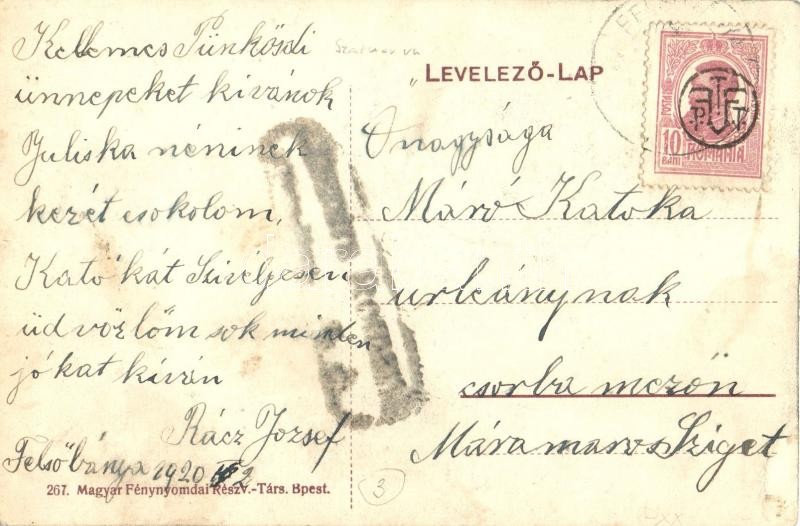 Kellemes Pünkösdi
ünnepeket kivánok
Juliska néninek
kezét csokolom,
Kató kát Szivéljesen
üdvözlöm sok minden
jókat kiván
Rácz Jozsef
Felsőbánya 1920 2
267. Magyar Fénynyomdai Részv.-Társ. Bpest.
Szatmár vm
LEVELEZŐ-LAP
10 BANI
ROMANIA
P T
Onagysága
Máró Katoka
urleánynak
csorba mezőn
Máramaros Sziget
3